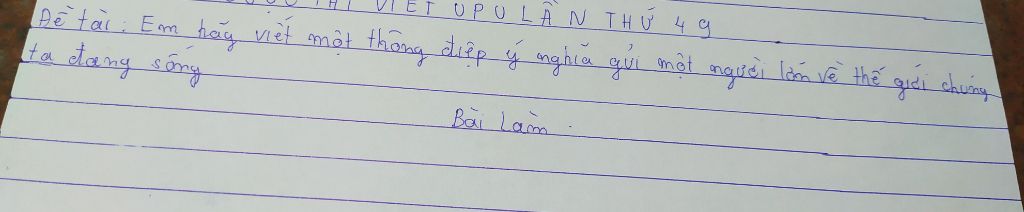 THI VIẾT UPU LẦN THỨ 49
Đề tài: Em hãy viết một thông điệp ý nghĩa gửi một người lớn về thế giới chúng
ta đang sống
Bài Làm